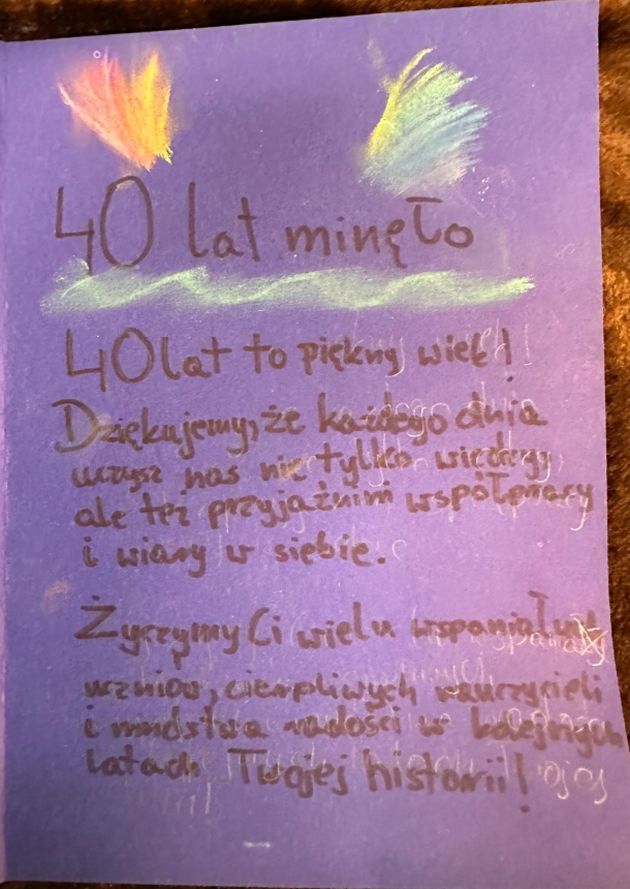 40 lat minęło
40 lat to piękny wiek!
Dziękujemy, że każdego dnia
uczysz nas nie tylko wiedzy,
ale też przyjaźnimi współpracy
i wiary w siebie.
Życzymy Ci wielu wspaniałych
uczniów, cierpliwych nauczycieli
i mnóstwa radości w kolejnych
latach Twojej historii!